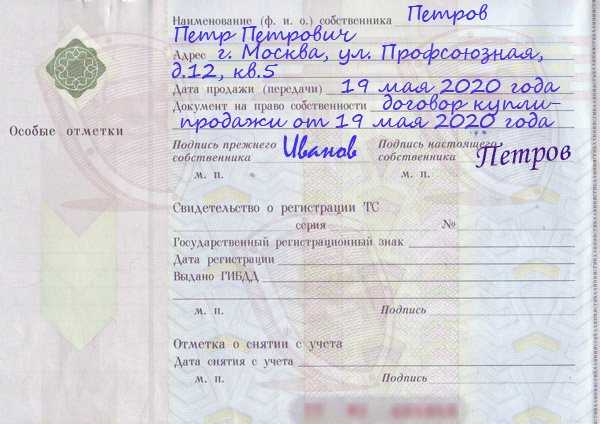 Наименование (ф. и. о.) собственника Петров
Петр Петрович
Адрес г. Москва, ул. Профсоюзная,
д.12, кв.5
Дата продажи (передачи) 19 мая 2020 года
Документ на право собственности договор купли-
продажи от 19 мая 2020 года
Особые отметки
Подпись прежнего собственника Иванов Подпись настоящего собственника Петров
м. п. м. п.
Свидетельство о регистрации ТС
серия №
Государственный регистрационный знак
Дата регистрации
Выдано ГИБДД
м. п. Подпись
Отметка о снятии с учета
Дата снятия с учета
м. п. Подпись